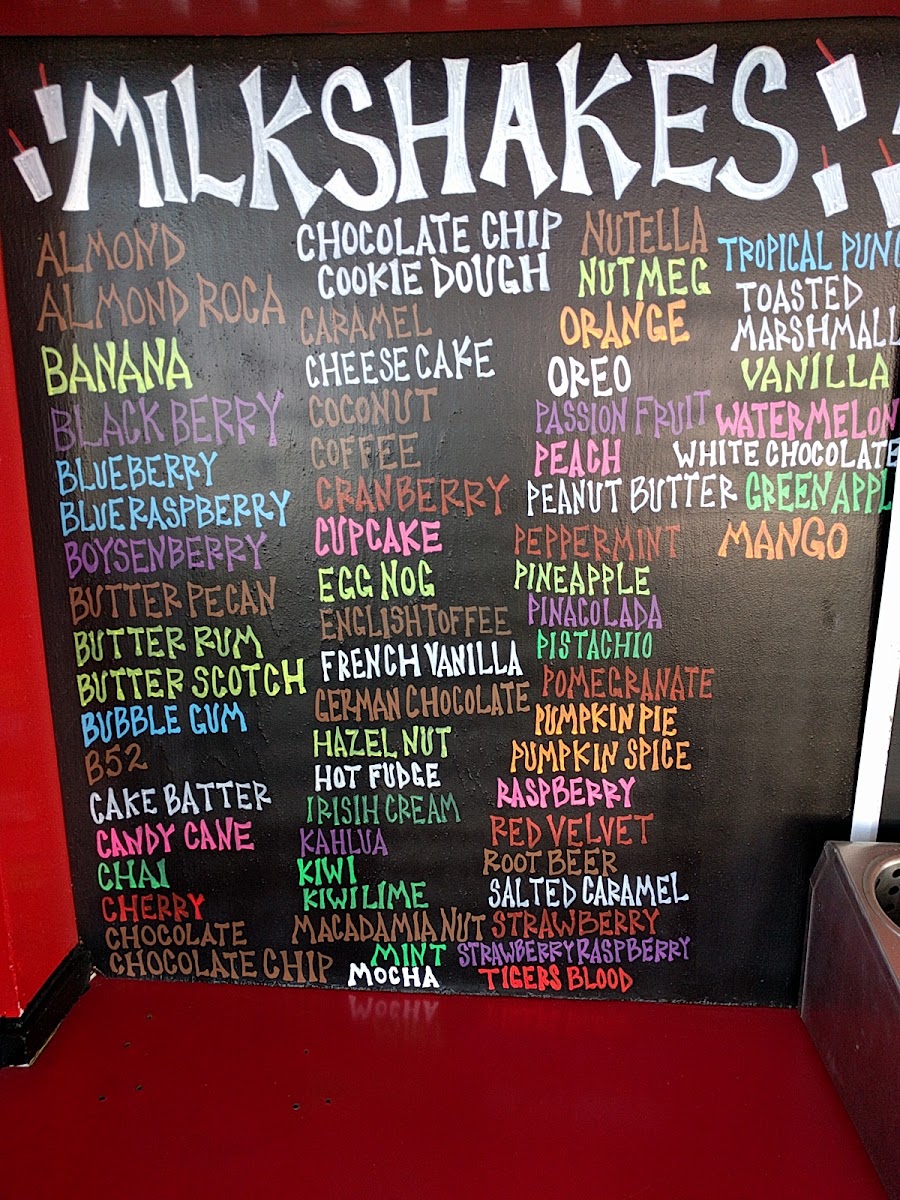 MILKSHAKES
ALMOND
ALMOND ROCA
BANANA
BLACK BERRY
BLUEBERRY
BLUERASPBERRY
BOYSENBERRY
BUTTER PECAN
BUTTER RUM
BUTTER SCOTCH
BUBBLE GUM
B52
CAKE BATTER
CANDY CANE
CHAI
CHERRY
CHOCOLATE
CHOCOLATE CHIP
CHOCOLATE CHIP
COOKIE DOUGH
CARAMEL
CHEESE CAKE
COCONUT
COFFEE
CRANBERRY
CUPCAKE
EGG NOG
ENGLISH TOFFEE
FRENCH VANILLA
GERMAN CHOCOLATE
HAZEL NUT
HOT FUDGE
IRISIH CREAM
KAHLUA
KIWI
KIWI LIME
MACADAMIA NUT
MINT
MOCHA
NUTELLA
NUTMEG
ORANGE
OREO
PASSION FRUIT
PEACH
PEANUT BUTTER
PEPPERMINT
PINEAPPLE
PINACOLADA
PISTACHIO
POMEGRANATE
PUMPKIN PIE
PUMPKIN SPICE
RASPBERRY
RED VELVET
ROOT BEER
SALTED CARAMEL
STRAWBERRY
STRAWBERRY RASPBERRY
TIGERS BLOOD
TROPICAL PUNC
TOASTED
MARSHMALL
VANILLA
WATERMELON
WHITE CHOCOLATE
GREEN APPL
MANGO
MOCHA